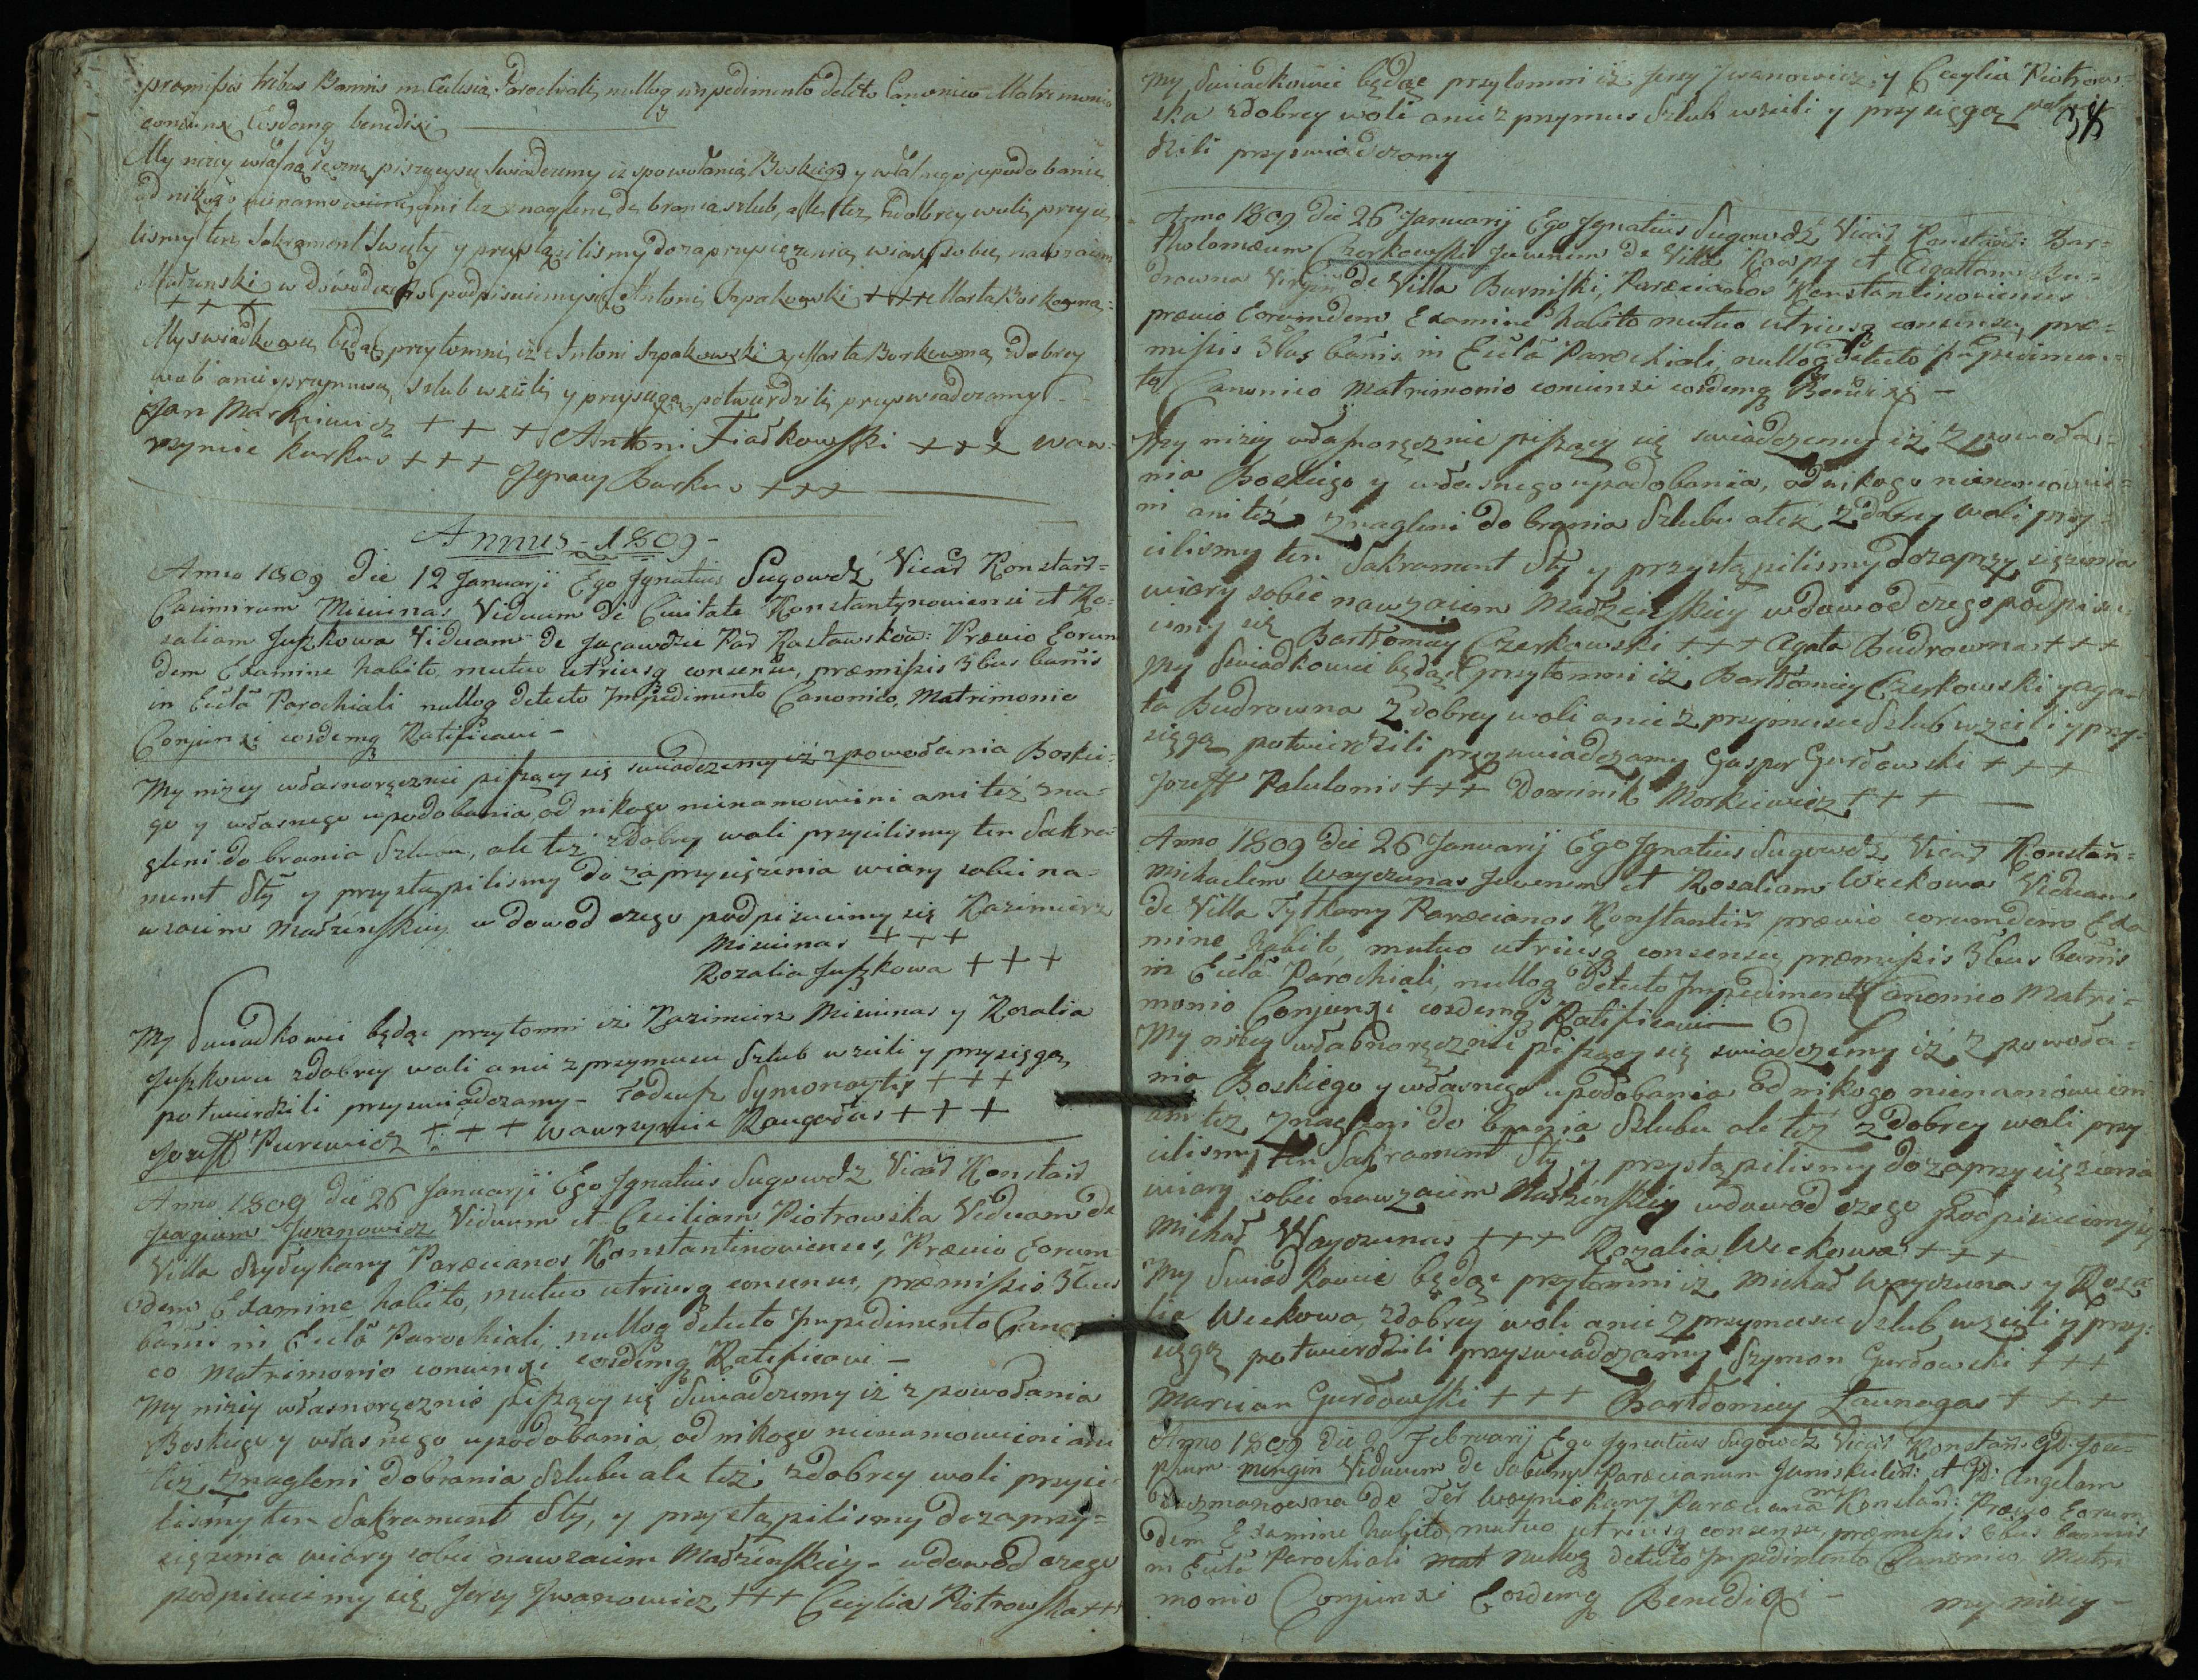 præmissis tribus Bannis in Ecclesia Parochiali nulloq impedimento detecto Canonico Matrimonio
coniunxi Eosdemq benedixi
My niżey własną ręką piszący się świadczemy iż z powołania Boskiego y własnego upodobania
od nikogo nienamowieni, ani też znagleni do brania szlub, ale też zdobrey woli przyie
lismy ten Sakrament Święty y przystąpilismy do zaprzysiężenia wiary sobie nawzaiem
Małżenski w dowod czego podpisuiemy się Antoni Szpakowski +++ Marta Borkowna
+ + +
My swiadkowie będąc przytomni iż Antoni Szpakowski y Marta Borkowna zdobrey
woli anie z przymusu, szlub wzieli y przysięgą potwierdzili przyswiadczamy
Jan Markiewicz + + + Antoni Fiałkowski + + + Waw-
rzyniec Kurkus + + + Jgnacy Burkus + + +
Annus - 1809 -
Anno 1809 Die 12 Januarji Ego Jgnatius Sugowdź Vicař Konstañ-
Casimirum Misiunas Viduum de Civitate Konstantynoviensi et Ro-
saliam Juszkowa Viduam de Jugawdzie Par Rastawskoŵ: Prævio Eorun
dem Examine habito, mutuo utriusq consensu, præmissis 3bus bañis
in Ecclã Parochiali nulloq detecto Jmpedimento Canonico, Matrimonio
Conjunxi eosdemq Ratificavi -
My niżey własnoręcznie piszący się swiadczemy iż z powołania Boskie-
go y własnego upodobania, od nikogo nienamowieni ani też zna-
gleni do brania Szlubu, ale też zdobrey woli przyielismy ten Sakra-
ment Sty y przystąpilismy do zaprzysiężenia wiary sobie na-
wzaiem Małżeńskiey w dowod czego podpisuiemy się Kazimierz
Misiunas + + +
Rozalia Juszkowa + + +
My Swiadkowie będąc przytomni iż Kazimierz Misiunas y Rozalia
Juszkowa zdobrey woli anie z przymusu Szlub wzieli y przysięgą
potwierdzili przyswiadczamy - Tadeusz Symonaytis + + +
Jozeff Purewicz + + + Wawrzyniec Raugadas + + +
Anno 1809 die 26 Januarji Ego Jgnatius Sugowdź Vicař Konstañ
Jeorgium Jwanowicz Viduum et Ceciliam Piotrowska Viduam de
Villa Parœcianos Konstantinovienses, Prævio Eorum
odem Examine habito, mutuo utriusq consensu, præmissis 3bus
bañis in Ecclã Parochiali, nulloq detecto Jmpedimento Canoni
co Matrimonio coniunxi eosdemq Ratificavi -
My niżey własnoręcznie piszący się Swiadczemy iż z powołania
Boskiego y własnego upodobania, od nikogo nienamowieni ani
też znagleni dobrania Szlubu ale też zdobrey woli przyie-
lismy ten Sakrament Sty, y przystąpilismy do zaprzy-
siężenia wiary sobie nawzaiem Małżeńskiey - wdowod czego
podpisuiemy się Jerzy Jwanowicz +++ Cecylia Piotrowska +++
My Swiadkowie będąc przytomni iż Jerzy Jwanowicz y Cecylia Piotrow-
ska zdobrey woli anie z przymus Szlub wzieli y przysięgą potwier
dzili przyswiadczamy
Anno 1809 die 26 Januarij Ego Jgnatius Sugowdź Vicař Konstañ: Bar-
tholomæum Czerkowski Juvenem de Villa et Agatham Bu-
drowna Virgin de Villa Burniszki, Parœcianos Konstantinovienses
prævio Eorumdem Examine habito mutuo utriusq consensu, præ-
missis 3bus bañis in Ecclã Parochiali, nulloq detecto Jmpedimen-
to Canonico Matrimonio coniunxi eosdemq Benedixi -
My niżey własnoręcznie piszący się swiadczemy iż z powoła-
nia Boskiego y własnego upodobania, od nikogo nienamowie-
ni ani też znagleni do brania Szlubu ale z zdobrey woli przy-
ielismy ten Sakrament Sty y przystąpilismy do zaprzysiężenia
wiary sobie nawzaiem Małżeńskiey w dowod czego podpisu-
iemy się Bartłomiey Czerkowski +++ Agata Budrowna +++
My Swiadkowie będąc przytomni iż Bartłomiey Czerkowski y Aga-
ta Budrowna zdobrey woli anie z przymusu Szlub wzieli y przy-
sięgą potwierdzili przyswiadczamy Gasper Gurdowski + + +
Jozeff Palulonis +++ Dominik Morkiewicz + + +
Anno 1809 Die 26 Januarij Ego Jgnatius Sugowdź Vicař Konstañ-
Michaelem Wayczunas Juvenem et Rosaliam Weckowa Viduam
de Villa Tytkany Parœcianos Konstantiñ prævio eorumdem Exa
mine habito mutuo utriusq consensu, præmissis 3bus bañis
in Ecclã Parochiali, nulloq detecto Jmpedimento Canonico Matri-
monio Conjunxi eosdemq Ratificavi
My niżey własnoręcznie piszący się swiadczemy iż z powoła-
nia Boskiego y własnego upodobania od nikogo nienamowieni
ani też znagleni do brania Szlubu ale też zdobrey woli przy
ielismy ten Sakrament Sty, y przystąpilismy do zaprzysiężenia
wiary sobie nawzaiem Małżeńskiey wdowod czego podpisuiemy się
Michał Wayczunas +++ Rozalia Weckowa +++
My Swiadkowie będąc przytomni iż Michał Wayczunas y Roza
lia Weckowa, zdobrey woli anie z przymusu Szlub wzieli y przy-
sięgą potwierdzili przyswiadczamy Szymon Gurdowski +++
Marcian Gurdowski + + + Bartłomiey Łaunagas + + +
Anno 1809 die 9 Februarij Ego Jgnatius Sugowdź Vicař Konstañ: GD: Jose-
phum Mingin Viduum de Parœcianum Janiskiel: et GD: Angelam
de Woyniskany Parœcianam Konstañ: Prævio Eorum
dem Examine habito, mutuo utriusq consensu, præmissis 3bus bannis
in Ecclã Parochiali mat nulloq detecto Jmpedimento Canonico Matri
monio Conjunxi Eosdemq Benedixi -
my niżey -